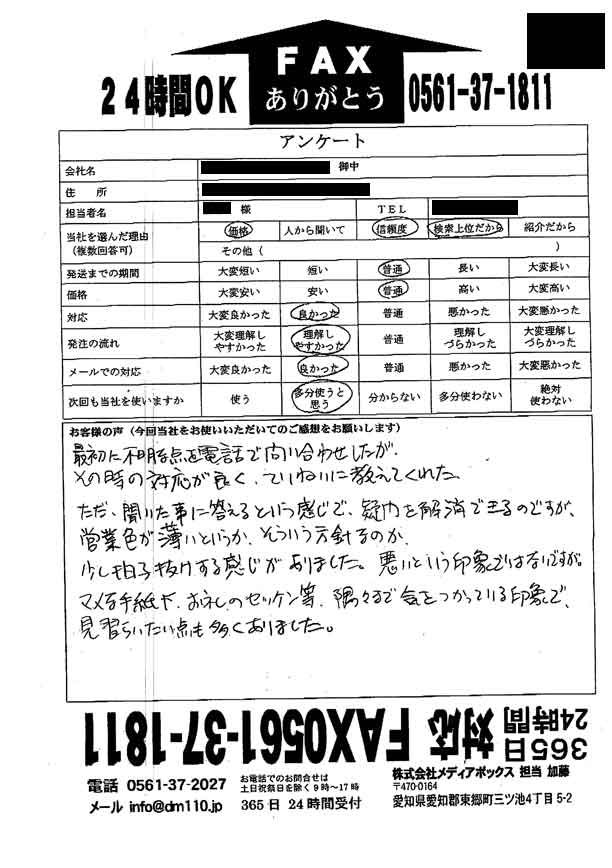 FAX
ありがとう
24時間OK
0561-37-1811
アンケート
会社名 御中
住 所
担当者名 様 TEL
当社を選んだ理由（複数回答可） 価格 人から聞いて 信頼度 検索上位だから 紹介だから
その他（ ）
発送までの期間 大変短い 短い 普通 長い 大変長い
価格 大変安い 安い 普通 高い 大変高い
対応 大変良かった 良かった 普通 悪かった 大変悪かった
発注の流れ 大変理解しやすかった 理解しやすかった 普通 理解しづらかった 大変理解しづらかった
メールでの対応 大変良かった 良かった 普通 悪かった 大変悪かった
次回も当社を使いますか 使う 多分使うと思う 分からない 多分使わない 絶対使わない
お客様の声（今回当社をお使いいただいてのご感想をお願いします）
最初に不明点を電話で問い合わせしたが、
その時の対応が良く、ていねいに教えてくれた。
ただ、聞いた事に答えるという感じで、疑問を解消できるのですが、
営業色が薄いというか、そういう方針なのか、
少し拍子抜けする感じがありました。悪いという印象ではないですが。
マメな手紙や、お礼のセッケン等、隅々まで気をつかっている印象で、
見習いたい点も多くありました。
365日24時間対応 FAX0561-37-1811
電話 0561-37-2027
メール info@dm110.jp
お電話でのお問合せは
土日祝祭日を除く9時～17時
365日24時間受付
株式会社メディアボックス 担当 加藤
〒470-0164
愛知県愛知郡東郷町三ツ池4丁目5-2